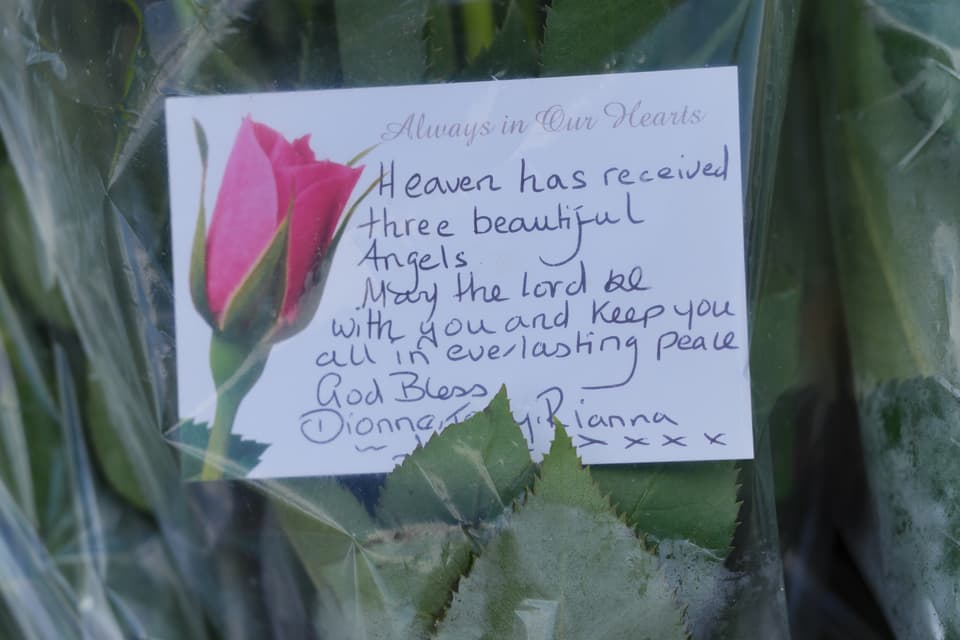 Always in Our Hearts
Heaven has received
three beautiful
Angels.
May the lord be
with you and keep you
all in everlasting peace
God Bless
Dionne, Rianna
x x x